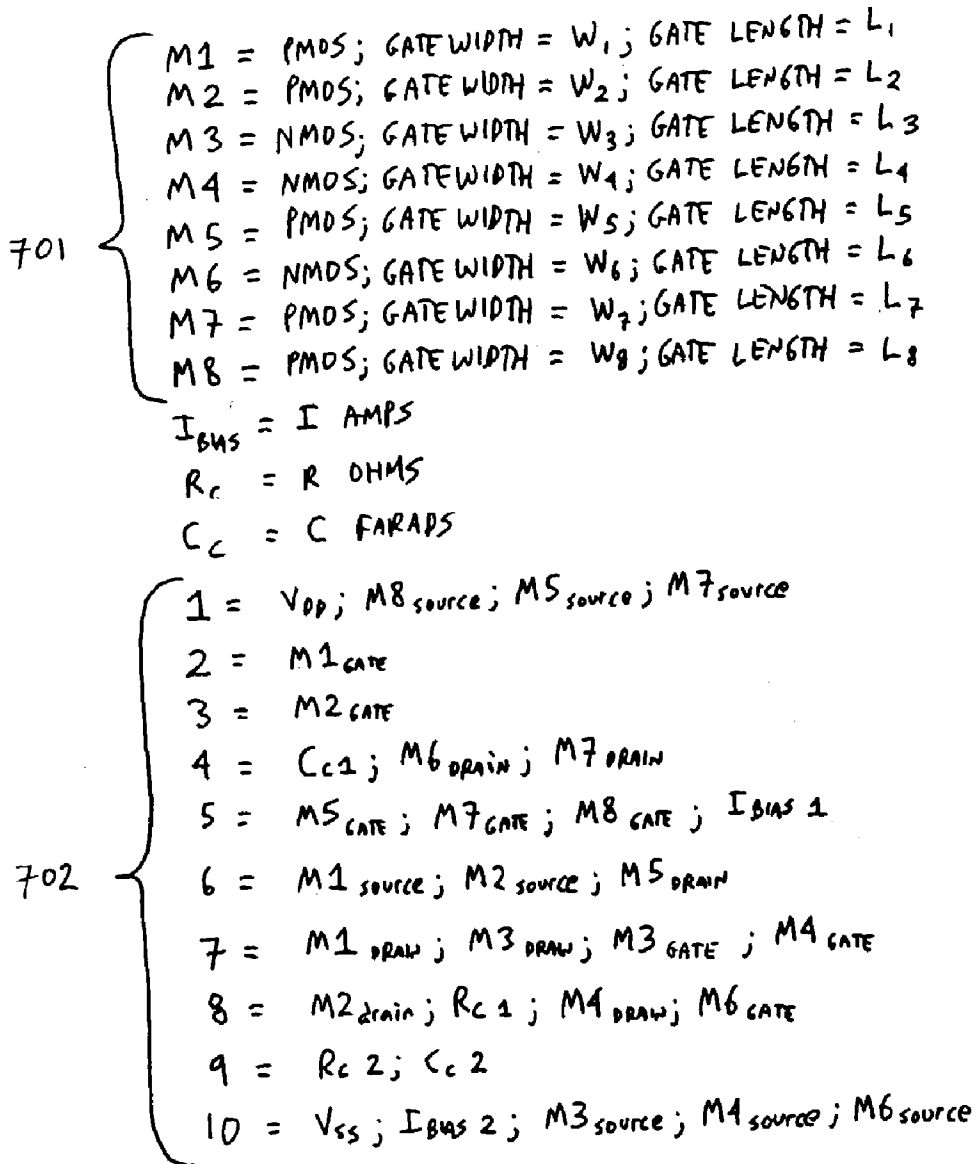 M1 = PMOS; GATE WIDTH = W1; GATE LENGTH = L1
M2 = PMOS; GATE WIDTH = W2; GATE LENGTH = L2
M3 = NMOS; GATE WIDTH = W3; GATE LENGTH = L3
M4 = NMOS; GATE WIDTH = W4; GATE LENGTH = L4
M5 = PMOS; GATE WIDTH = W5; GATE LENGTH = L5
701
M6 = NMOS; GATE WIDTH = W6; GATE LENGTH = L6
M7 = PMOS; GATE WIDTH = W7; GATE LENGTH = L7
M8 = PMOS; GATE WIDTH = W8; GATE LENGTH = L8
IBIAS = I AMPS
Rc = R OHMS
Cc = C FARADS
1 = VDD; M8 source; M5 source; M7 source
2 = M1 GATE
3 = M2 GATE
4 = Cc1; M6 DRAIN; M7 DRAIN
5 = M5 GATE; M7 GATE; M8 GATE; IBIAS 1
702
6 = M1 source; M2 source; M5 DRAIN
7 = M1 DRAIN; M3 DRAIN; M3 GATE; M4 GATE
8 = M2 drain; Rc 1; M4 DRAIN; M6 GATE
9 = Rc 2; Cc 2
10 = Vss; IBIAS 2; M3 source; M4 source; M6 source